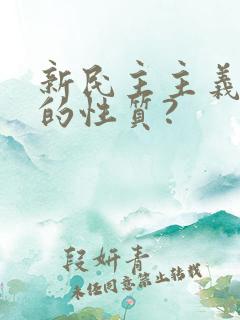 新民主主義
的性質?
段妍青
未任同意禁止转载